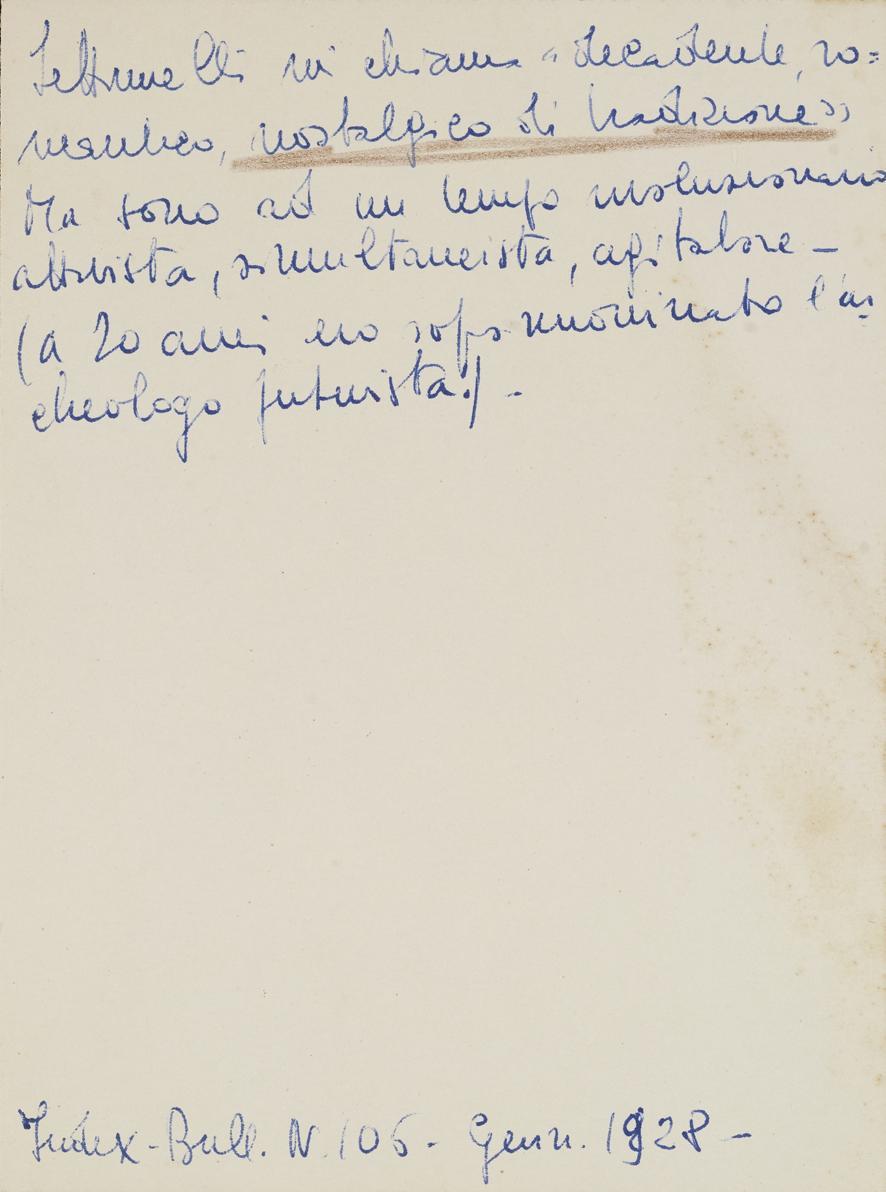 Settimelli mi chiama "decadente, ro=
mantico, nostalgico di tradizione"
Ma sono ad un tempo rivoluzionario
attivista, simultaneista, agitatore –
(a 20 anni ero soprannominato l'ar
cheologo futurista!) –
Index-Bull. N. 106 - Genn. 1928 –